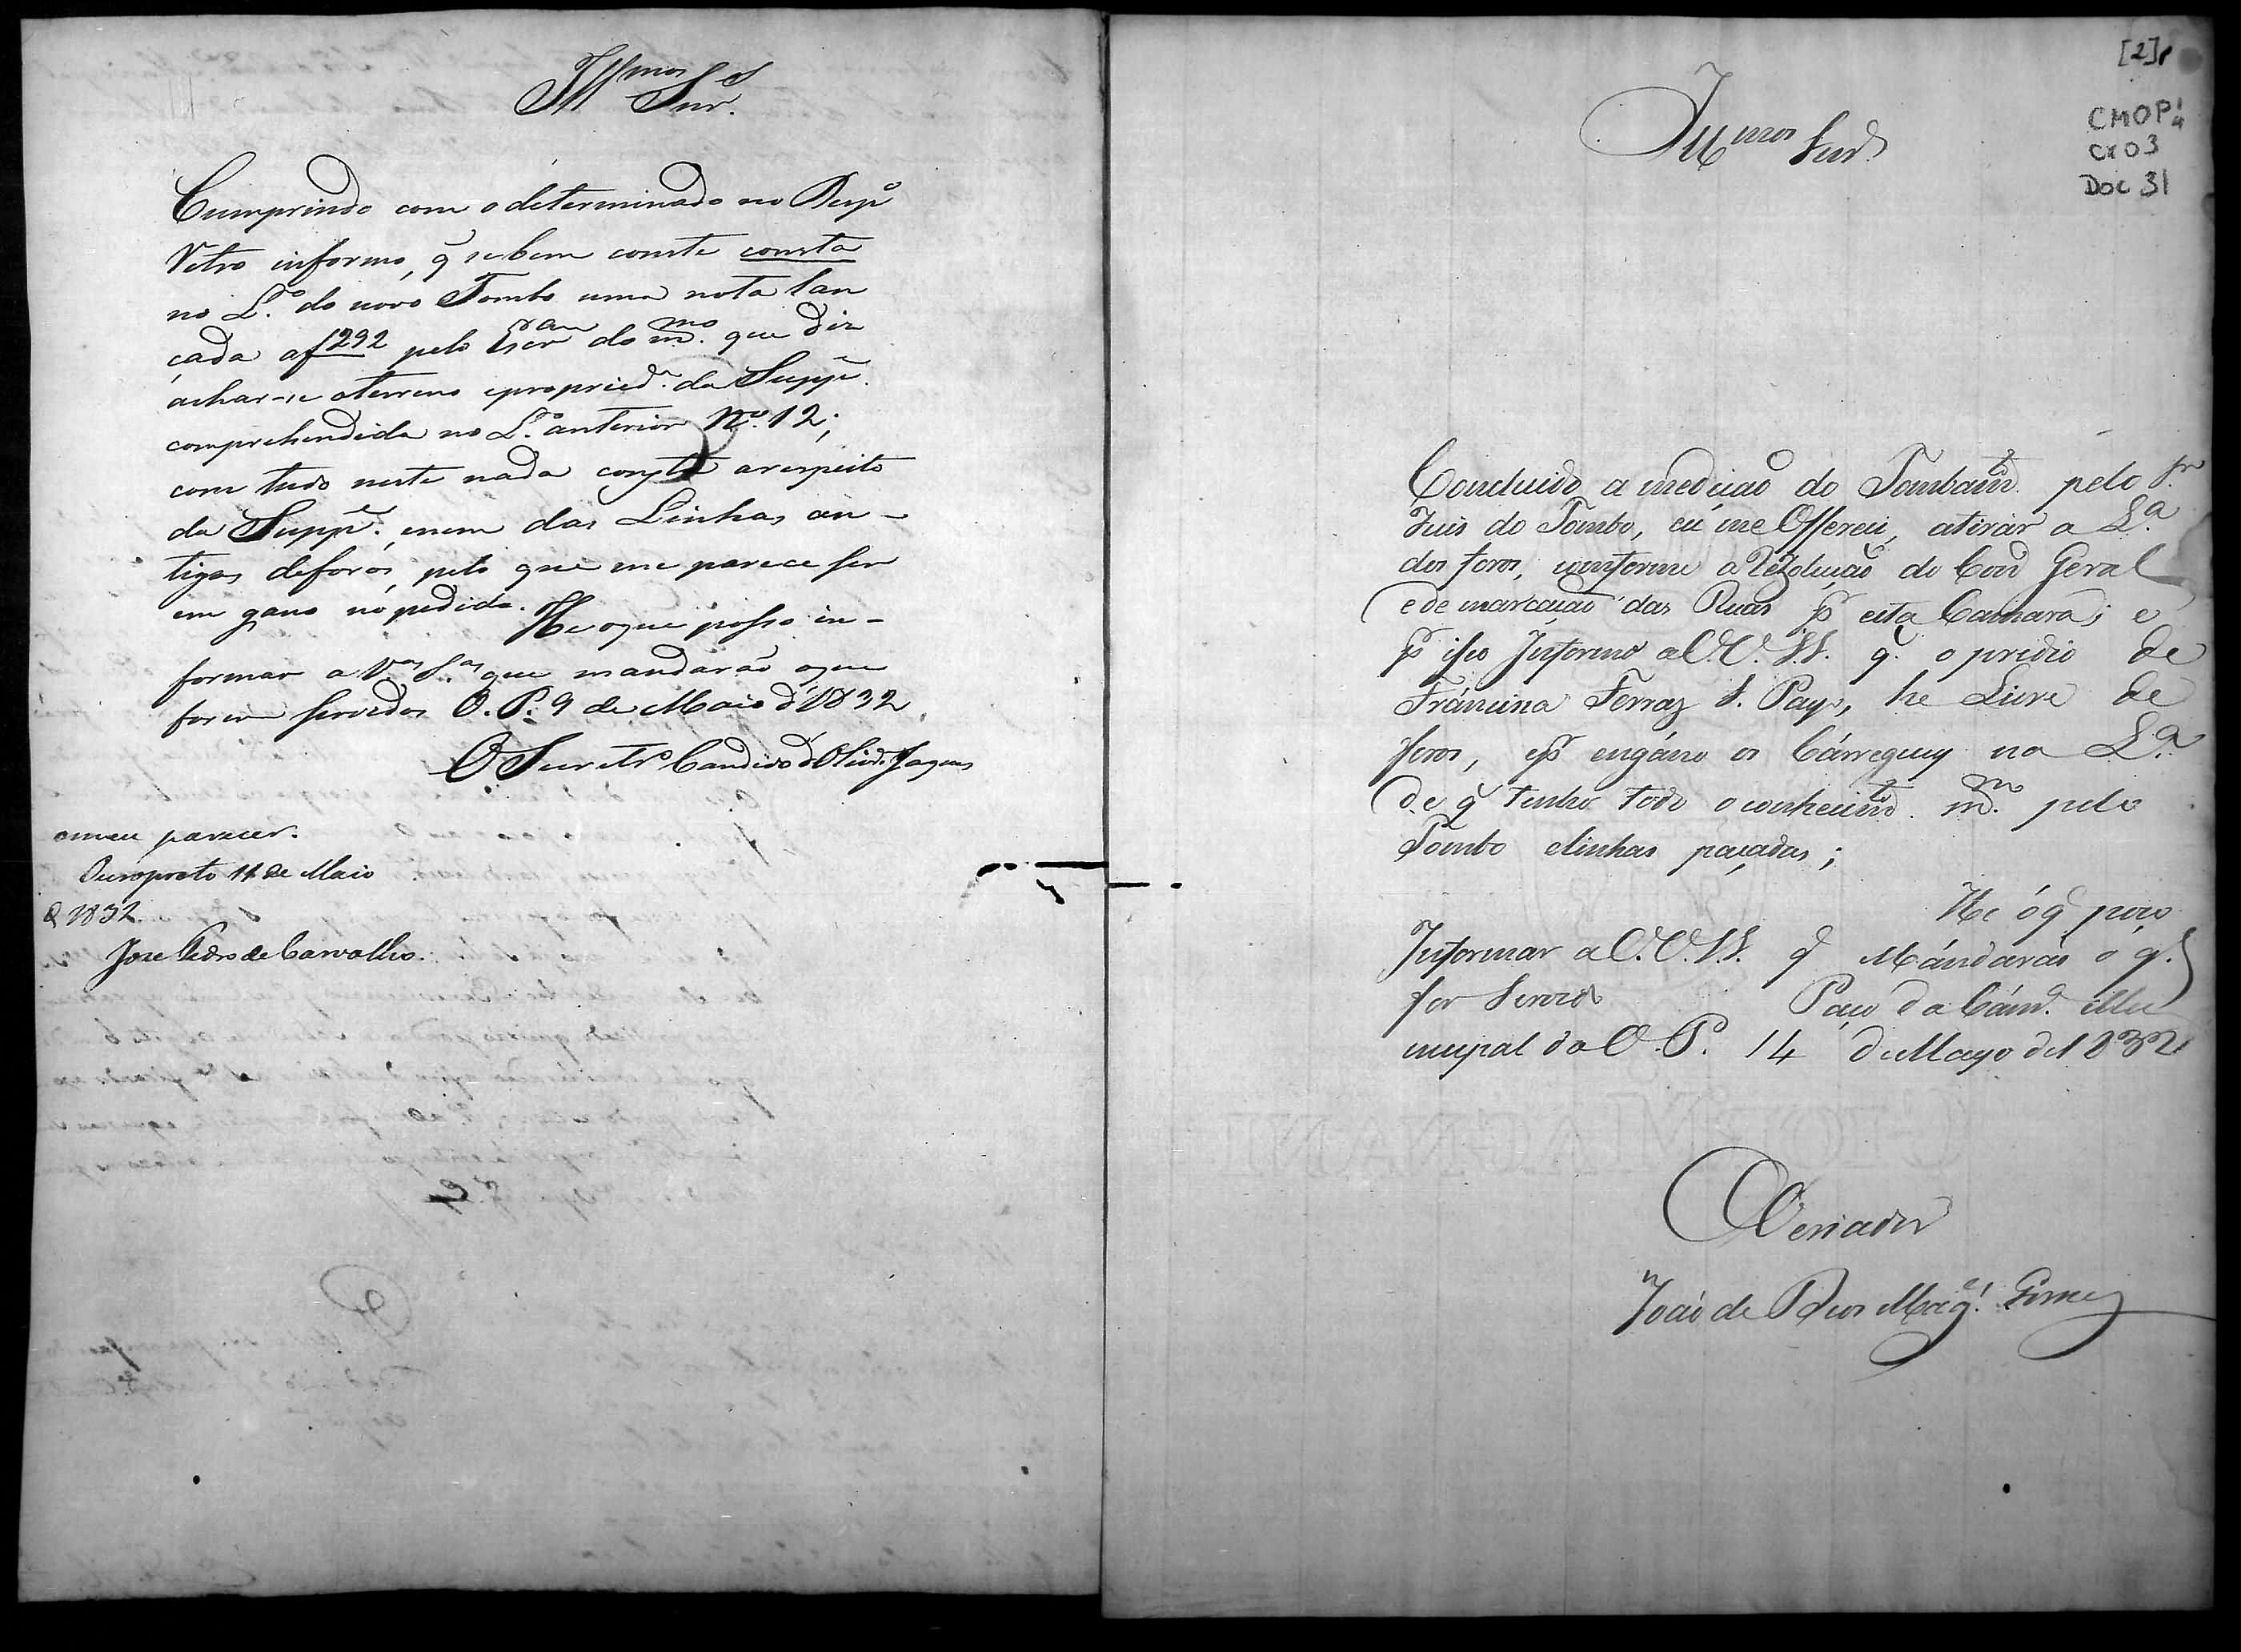 Illmos Snrs.
Cumprindo com o determinado no Desp.º
Retro informo, q̃ se bem conste consta
no L.º do novo Tombo uma nota lan
çada af 292 pelo Escram do mmo. que diz
achar-se o terreno epropried.e da Supp.e
comprehendida no L.º anterior Nº. 12;
com tudo neste nada consta arespeito
da Supp.e, enem das Linhas an-
tigas deforos, pelo que me parece ser
em gano no pedido. He oque posso in-
formar a V.as S.as que mandarão oque
forem servidos O. P. 9 de Maio d'1832
O Secretr.º Candido d'Olivr.ª Jaques
omeu parecer.
Ouropreto 11 de Maio
d 1832.
Joze Pedro de Carvalho.
[2]
CMOP
Cx 03
Doc 31
Illmos Snrs.
Concluido a medição do Tombamto. pelo Sr.
Juis do Tombo, eu me Offereci, atirar a L.ª
dos foros, comforme a Rezolução do Cons. Geral
e de marcação das Ruas p.r esta Camara; e
p.r isso Informo a V.V. S.S. q. o predio de
Fráncisca Ferraz S. Payo, he Livre de
foros, e p.r engáno os Cárreguey na L.ª
De q̃ Tenho todo o conhecimto. mmo. pelo
Tombo elinhas paçadas;
He ó q̃ poço
Informar a V.V. S.S. q̃ Mándarás o q.
for Servido Paço da Cám.ª Mu
nicipal do O. P. 14 d Mayo de 1832
O Veriador
João de Deos Mag.es Gomes